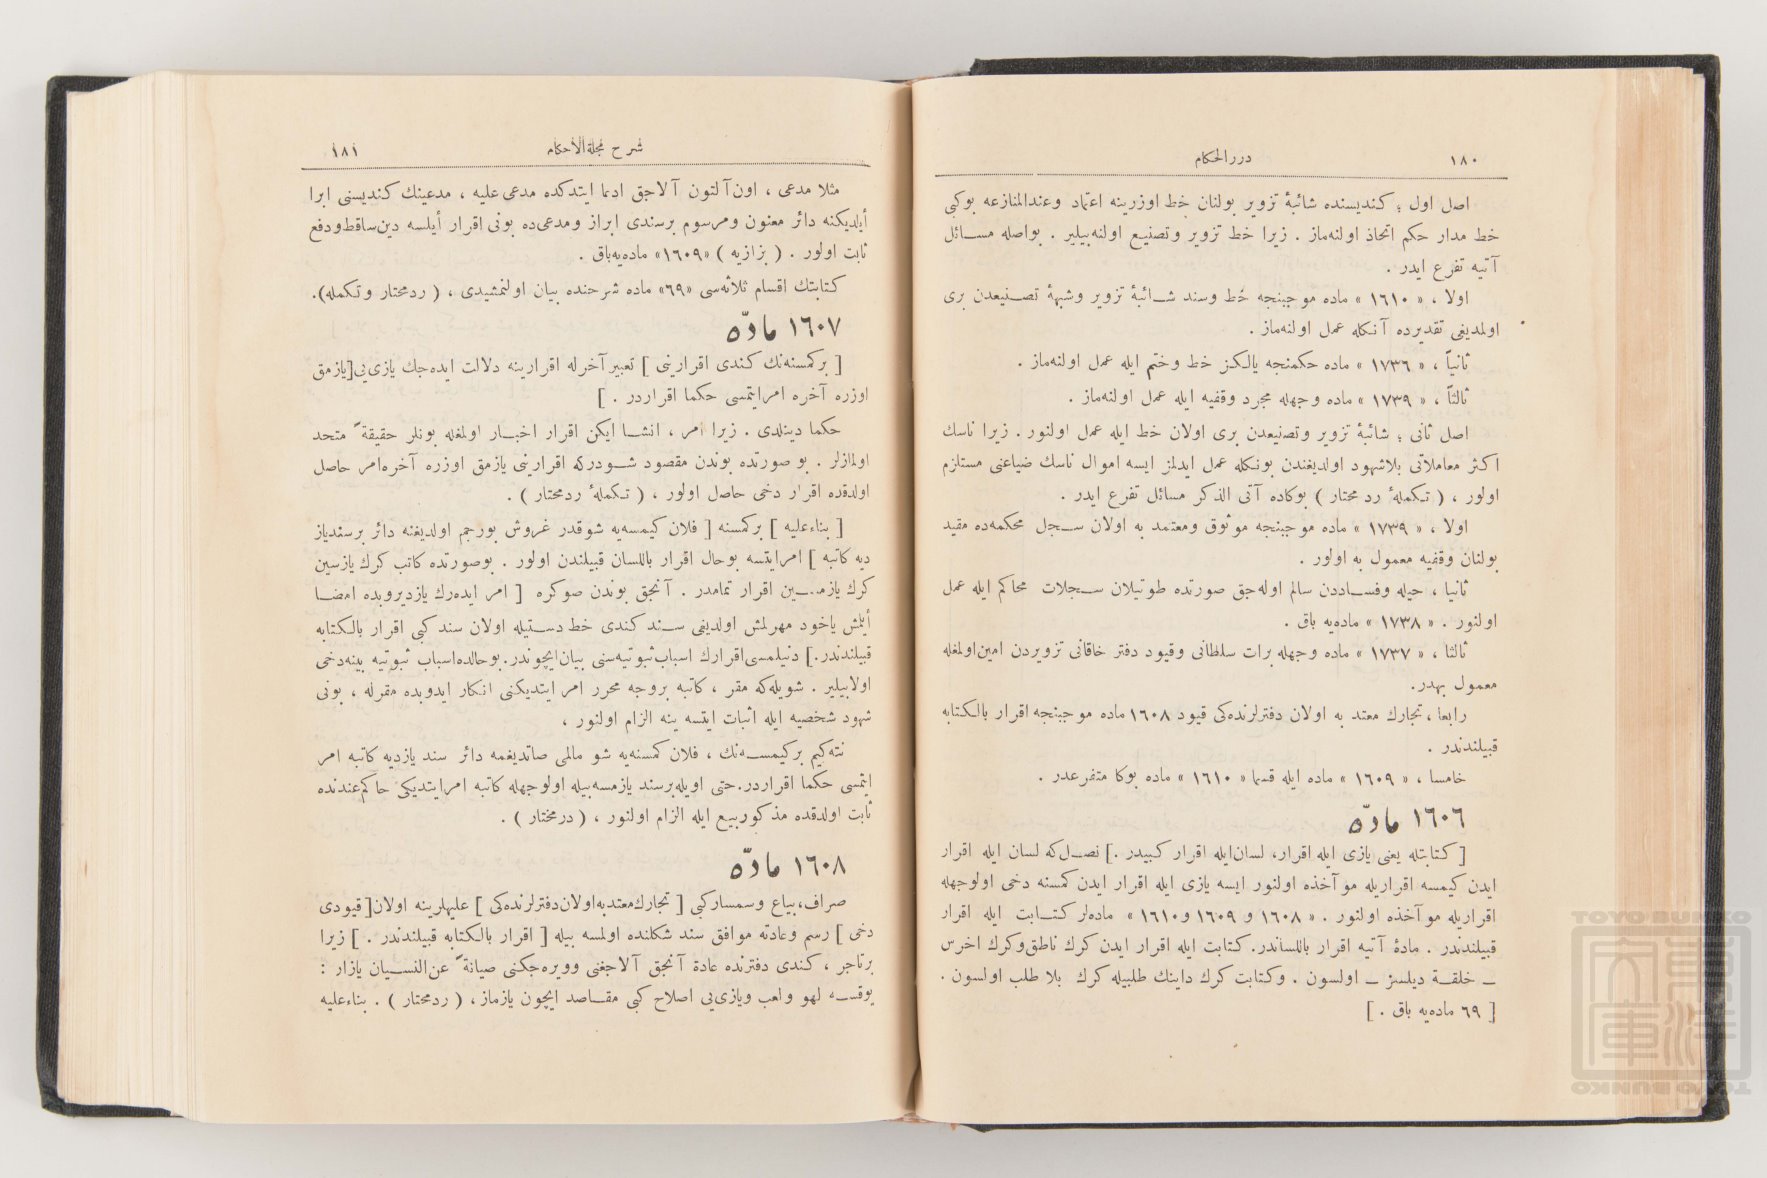 ١٨٠
دررالحكام
اصل اول ؛ كنديسنده شائبهٔ تزوير بولنان خط اوزرينه اعتماد وعندالمنازعه بوكبى
خط مدار حكم اتخاذ اولنه‌ماز . زيرا خط تزوير وتصنيع اولنه‌بيلير . بواصله مسائل
آتيه تفرع ايدر .
اولا ، « ١٦١٠ » ماده موجبنجه خط وسند شائبهٔ تزوير وشبههٔ تصنيعدن برى
اولمديغى تقديرده آنكله عمل اولنه‌ماز .
ثانياً ، « ١٧٣٦ » ماده حكمنجه يالكز خط وختم ايله عمل اولنه‌ماز .
ثالثاً ، « ١٧٣٩ » ماده وجهله مجرد وقفيه ايله عمل اولنه‌ماز .
اصل ثانى ؛ شائبهٔ تزوير وتصنيعدن برى اولان خط ايله عمل اولنور . زيرا ناسك
اكثر معاملاتى بلاشهود اولديغندن بونكله عمل ايدلمز ايسه اموال ناسك ضياعنى مستلزم
اولور ، ( تكملهٔ رد محتار ) بوكاده آتى الذكر مسائل تفرع ايدر .
اولا ، « ١٧٣٩ » ماده موجبنجه موثوق ومعتمد به اولان سجل محكمه‌ده مقيد
بولنان وقفيه معمول به اولور .
ثانيا ، حيله وفساددن سالم اوله‌جق صورتده طوتيلان سجلات محاكم ايله عمل
اولنور . « ١٧٣٨ » ماده‌يه باق .
ثالثا ، « ١٧٣٧ » ماده وجهله برات سلطانى وقيود دفتر خاقانى تزويردن امين‌اولمغله
معمول بهدر.
رابعا ، تجارك معتد به اولان دفترلرنده‌كى قيود ١٦٠٨ ماده موجبنجه اقرار بالكتابه
قبيلندندر .
خامسا ، « ١٦٠٩ » ماده ايله قسما « ١٦١٠ » ماده بوكا متفرعدر .
١٦٠٦ مادّه
[ كتابتله يعنى يازى ايله اقرار، لسان‌ايله اقرار كبيدر .] نصل‌كه لسان ايله اقرار
ايدن كيمسه اقراريله مو آخذه اولنور ايسه يازى ايله اقرار ايدن كمسنه دخى اولوجهله
اقراريله مو آخذه اولنور . « ١٦٠٨ و ١٦٠٩ و ١٦١٠ » ماده‌لر كتابت ايله اقرار
قبيلندندر . مادهٔ آتيه اقرار باللساندر. كتابت ايله اقرار ايدن كرك ناطق‌وكرك اخرس
ــ خلقة ديلسز ــ اولسون . وكتابت كرك داينك طلبيله كرك بلا طلب اولسون .
[ ٦٩ ماده‌يه باق . ]
شرح مجلة‌الأحكام
١٨١
مثلا مدعى ، اون‌آلتون آلاجق ادعا ايتدكده مدعى عليه ، مدعينك كنديسنى ابرا
أيلديكنه دائر معنون ومرسوم برسندى ابراز ومدعى‌ده بونى اقرار أيلسه دين‌ساقط‌ودفع
ثابت اولور . ( بزازيه ) «١٦٠٩» ماده‌يه‌باق .
كتابتك اقسام ثلاثه‌سى «٦٩» ماده شرحنده بيان اولنمشيدى ، ( ردمحتار وتكمله).
١٦٠٧ مادّه
[ بركمسنه‌نك كندى اقرارينى ] تعبير آخرله اقرارينه دلالت ايده‌جك يازى‌يى[يازمق
اوزره آخره امرايتمسى حكما اقراردر . ]
حكما دينلدى . زيرا امر ، انشا ايكن اقرار اخبار اولمغله بونلر حقيقةً متحد
اولمازلر . بو صورتده بوندن مقصود شودركه اقرارينى يازمق اوزره آخره‌امر حاصل
اولدقده اقرار دخى حاصل اولور ، ( تكملهٔ ردمحتار ) .
[ بناءعليه ] بركمسنه [ فلان كيمسه‌يه شوقدر غروش بورجم اولديغنه دائر برسندياز
ديه كاتبه ] امرايتسه بوحال اقرار باللسان قبيلندن اولور . بوصورتده كاتب كرك يازسين
كرك يازمسين اقرار تمامدر . آنجق بوندن صوكره [ امر ايده‌رك يازديروبده امضا
أيلمش ياخود مهرلمش اولديغى سند كندى خط دستيله اولان سند كبى اقرار بالكتابه
قبيلندندر.] دنيلمسى‌اقرارك اسباب‌ثبوتيه‌سنى بيان‌ايچوندر.بوحالده‌اسباب ثبوتيه بينه‌دخى
اولابيلير . شويله‌كه مقر ، كاتبه بروجه محرر امر ايتديكنى انكار ايدوبده مقرله ، بونى
شهود شخصيه ايله اثبات ايتسه ينه الزام اولنور ،
نته‌كيم بركيمسه‌نك ، فلان كمسنه‌يه شو مالمى صاتديغمه دائر سند يازديه كاتبه امر
ايتمسى حكما اقراردر.حتى اويله‌برسند يازمسه‌بيله اولوجهله كاتبه امرايتديكى حاكم‌عندنده
ثابت اولدقده مذكوربيع ايله الزام اولنور ، ( درمختار ) .
١٦٠٨ مادّه
صراف،بياع وسمسارکبى [ تجارك‌معتدبه‌اولان‌دفترلرنده‌كى ] عليهلرينه اولان[ قيودى
دخى ] رسم وعادته موافق سند شكلنده اولمسه بيله [ اقرار بالكتابه قبيلندندر . ] زيرا
برتاجر ، كندى دفترنده عادة آنجق آلاجغنى وويره‌جكنى صيانةً عن‌النسيان يازار :
يوقسه لهو ولعب ويازى‌يى اصلاح كبى مقاصد ايچون يازماز ، ( ردمحتار ) . بناءعليه
TOYO BUNKO
東洋文庫
TOYO BUNKO